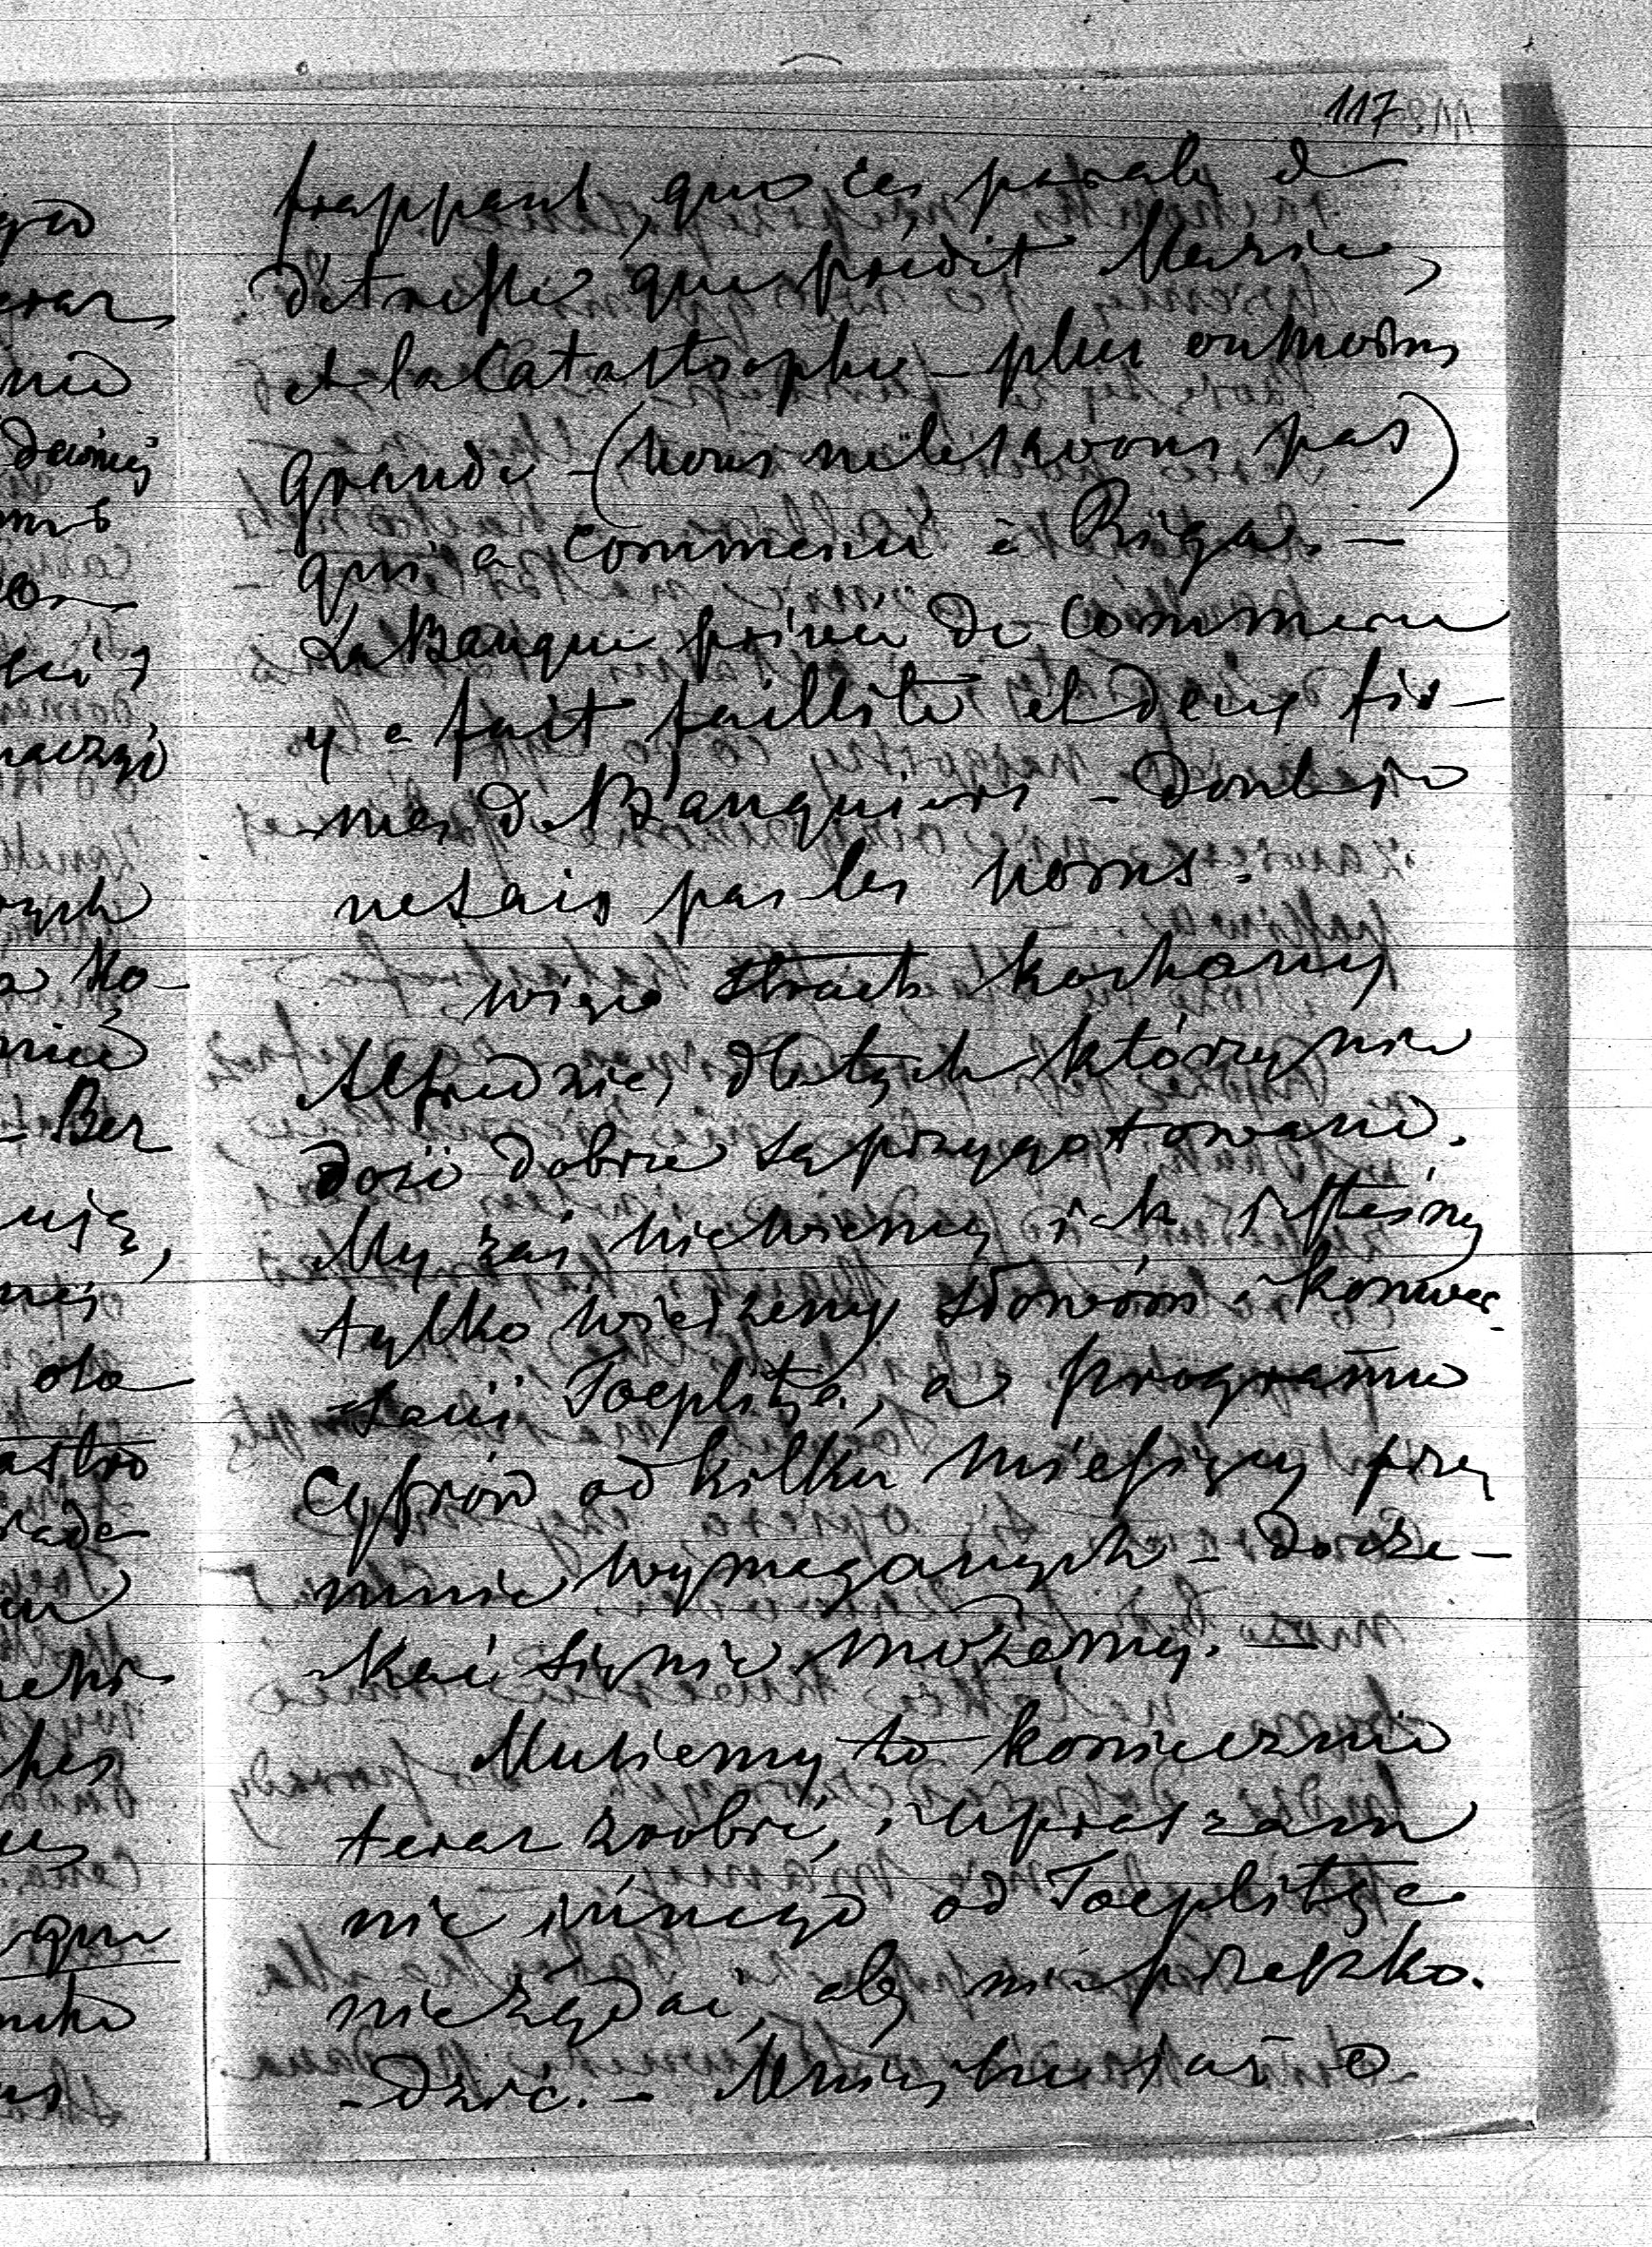 117
frappant, que ces paroles de
détresse que prédit Marie,
et la Catastrophe – plus ou moins
grande – (nous ne le savons pas)
qui a commencé à Riga. –
La Banque privée de Commerce
y a fait faillite et deux fir-
mes de Banquiers – dont je
ne sais pas les noms.
więc strach kochany
Alfredzie, dla tych którzy nie
dość dobrze są przygotowani.
My zaś nie wiemy jak jesteśmy
tylko wierzemy słowom i konwer-
sacii Toeplitza, a programu
Cyfrów od kilku miesięcy prze
mnie wymaganych – docze-
kać się nie możemy. –
Musiemy to koniecznie
teraz zrobić, i upraszam
nic innego od Toeplitza
nie żądać, aby nie przeszko-
-dzić. –